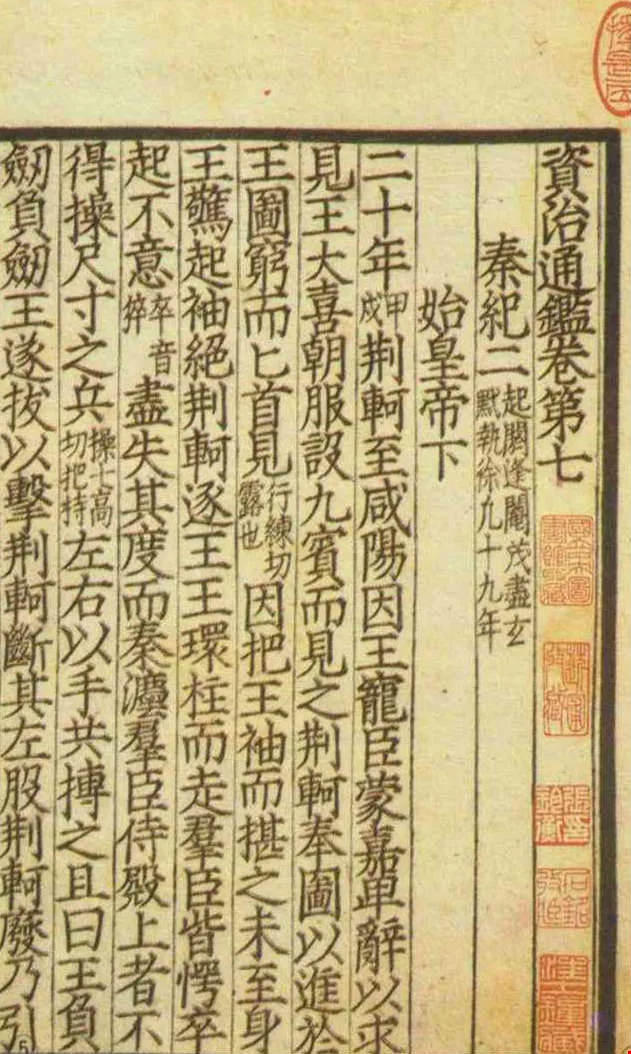 資治通鑑卷第七
秦紀二起閼逢閹茂盡玄黓執徐凡十九年
始皇帝下
二十年甲戌荆軻至咸陽因王寵臣蒙嘉卑辭以求
見王大喜朝服設九賓而見之荆軻奉圖以進於
王圖窮而匕首見行練切露也因把王袖而揕之未至身
王驚起袖絕荆軻逐王王環柱而走羣臣皆愕卒
起不意卒音猝盡失其度而秦灋羣臣侍殿上者不
得操尺寸之兵操七高切把持左右以手共搏之且曰王負
劒負劒王遂拔以擊荆軻斷其左股荆軻廢乃引